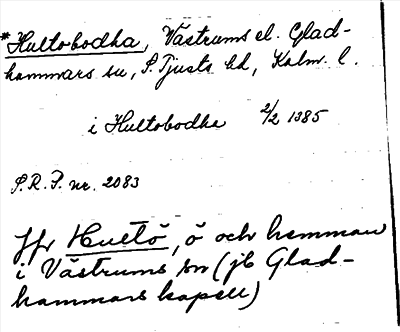 *Hultobodha, Västrums el. Glad-
hammars sn, S. Tjusts hd, Kalm. l.
i Hultobodha 2/2 1385
S.R.P. nr. 2083
Jfr Hultö, ö och hemman
i Västrums sn (jb Glad-
hammars kapell)